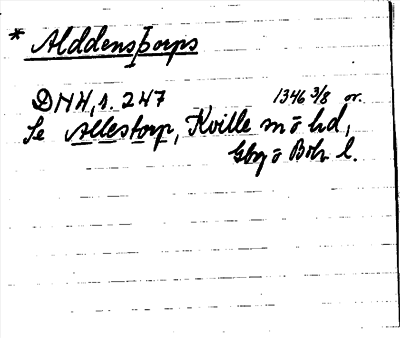 * Alddensþorps
DNH, 1. 247 1346 3/8 or.
Se Allestorp, Kville sn o hd,
Gbg o Boh l.